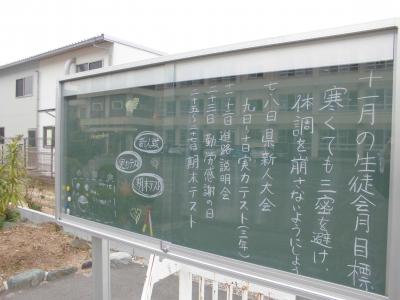 十一月の生徒会月目標
寒くても三密を避け、
体調を崩さないようにしよう
七・八日 県新人大会
九日~十日 実力テスト(三年)
十一~十二日 進路説明会
二十三日 勤労感謝の日
二十五~二十七日 期末テスト
新人戦
実力テスト
期末テスト